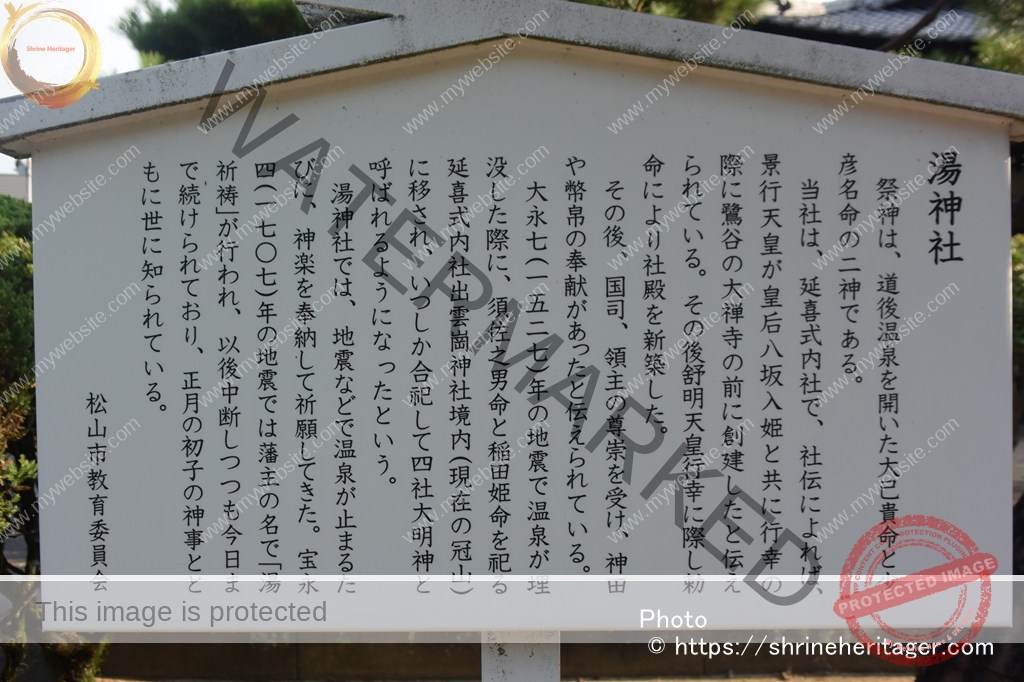 湯神社
祭神は、道後温泉を開いた大己貴命と
彦名命の二神である。
当社は、延喜式内社で、社伝によれば、
景行天皇が皇后八坂入姫と共に行幸の
際に鷺谷の大禅寺の前に創建したと伝え
られている。その後舒明天皇行幸に際し勅
命により社殿を新築した。
その後、国司、領主の尊崇を受け、神田
や幣帛の奉献があったと伝えられている。
大永七(一五二七)年の地震で温泉が埋
没した際に、須佐之男命と稲田姫命を祀る
延喜式内社出雲崗神社境内(現在の冠山)
に移され、いつしか合祀して四社大明神と
呼ばれるようになったという。
湯神社では、地震などで温泉が止まるた
びに、神楽を奉納して祈願してきた。宝永
四(一七〇七)年の地震では藩主の名で「湯
祈祷」が行われ、以後中断しつつも今日ま
で続けられており、正月の初子の神事とと
もに世に知られている。
松山市教育委員会
Shrine Heritager
WATERMARKED
www.mywebsite.com
PROTECTED IMAGE
This image is protected
Photo
© https://shrineheritager.com